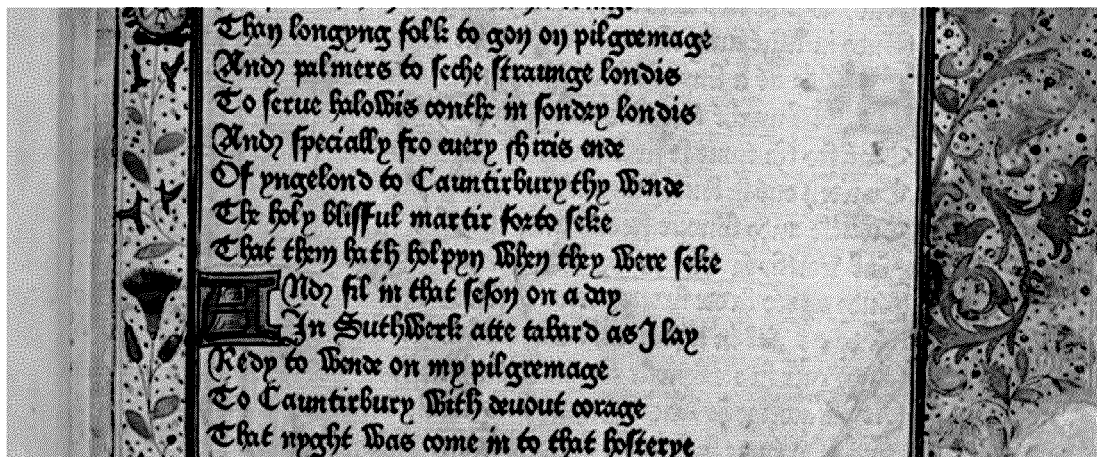 Than longyng folk to gon on pilgremage
And palmers to seche straunge londis
To serue halowis couthe in sondry londis
And specially fro euery shiris ende
Of yngelond to Cauntirbury thy wende
The holy blisful martir forto seke
That them hath holpyn when they were seke
ANd fil in that seson on a day
In Suthwerk atte tabard as I lay
Redy to wende on my pilgremage
To Cauntirbury with deuout corage
That nyght was come in to that hosterye